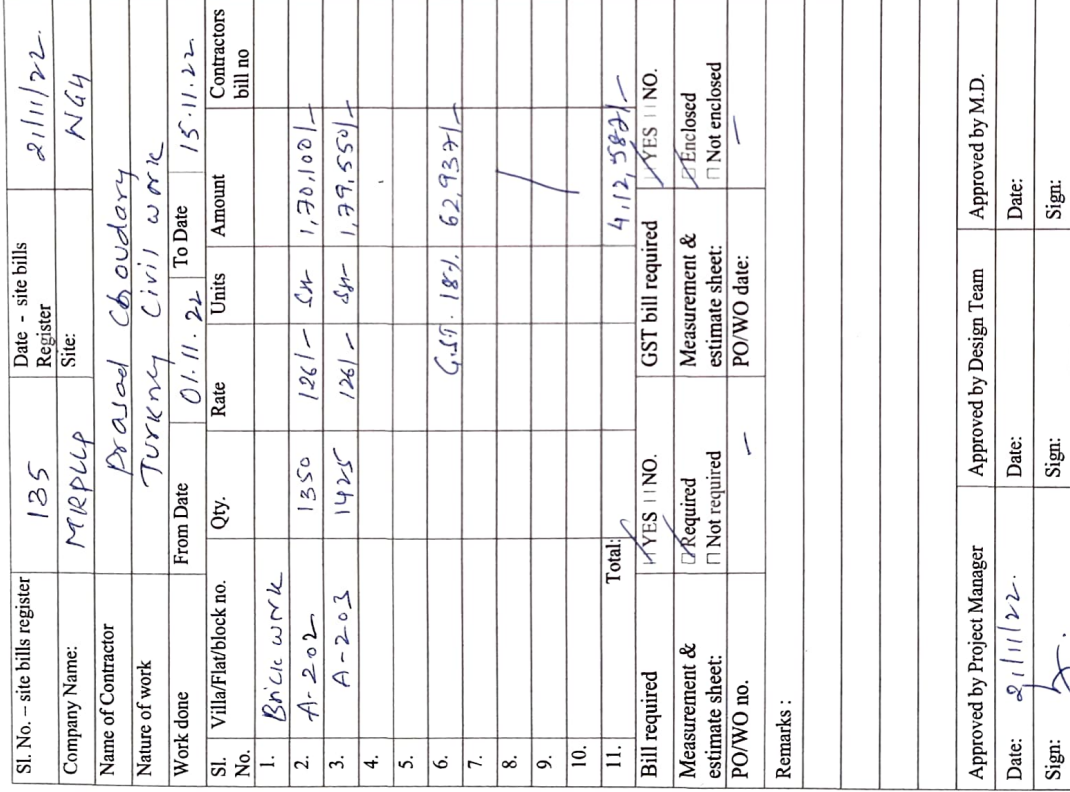 Sl. No. – site bills register 135 Date - site bills Register 21/11/22.
Company Name: MRPLLP Site: NG4
Name of Contractor Prasad Choudary
Nature of work Turkney Civil work
Work done From Date 01.11.22 To Date 15.11.22
Sl. No. Villa/Flat/block no. Qty. Rate Units Amount Contractors bill no
1. Brick work
2. A-202 1350 126/- Sft 1,70,100/-
3. A-203 1425 126/- Sft 1,79,550/-
4.
5.
6. G.ST. 18%. 62,937/-
7.
8.
9.
10.
11. Total: 4,12,587/-
Bill required YES NO. GST bill required YES NO.
Measurement & estimate sheet: Required Not required Measurement & estimate sheet: Enclosed Not enclosed
PO/WO no. — PO/WO date: —
Remarks :
Approved by Project Manager Approved by Design Team Approved by M.D.
Date: 21/11/22. Date: Date:
Sign: Sign: Sign: